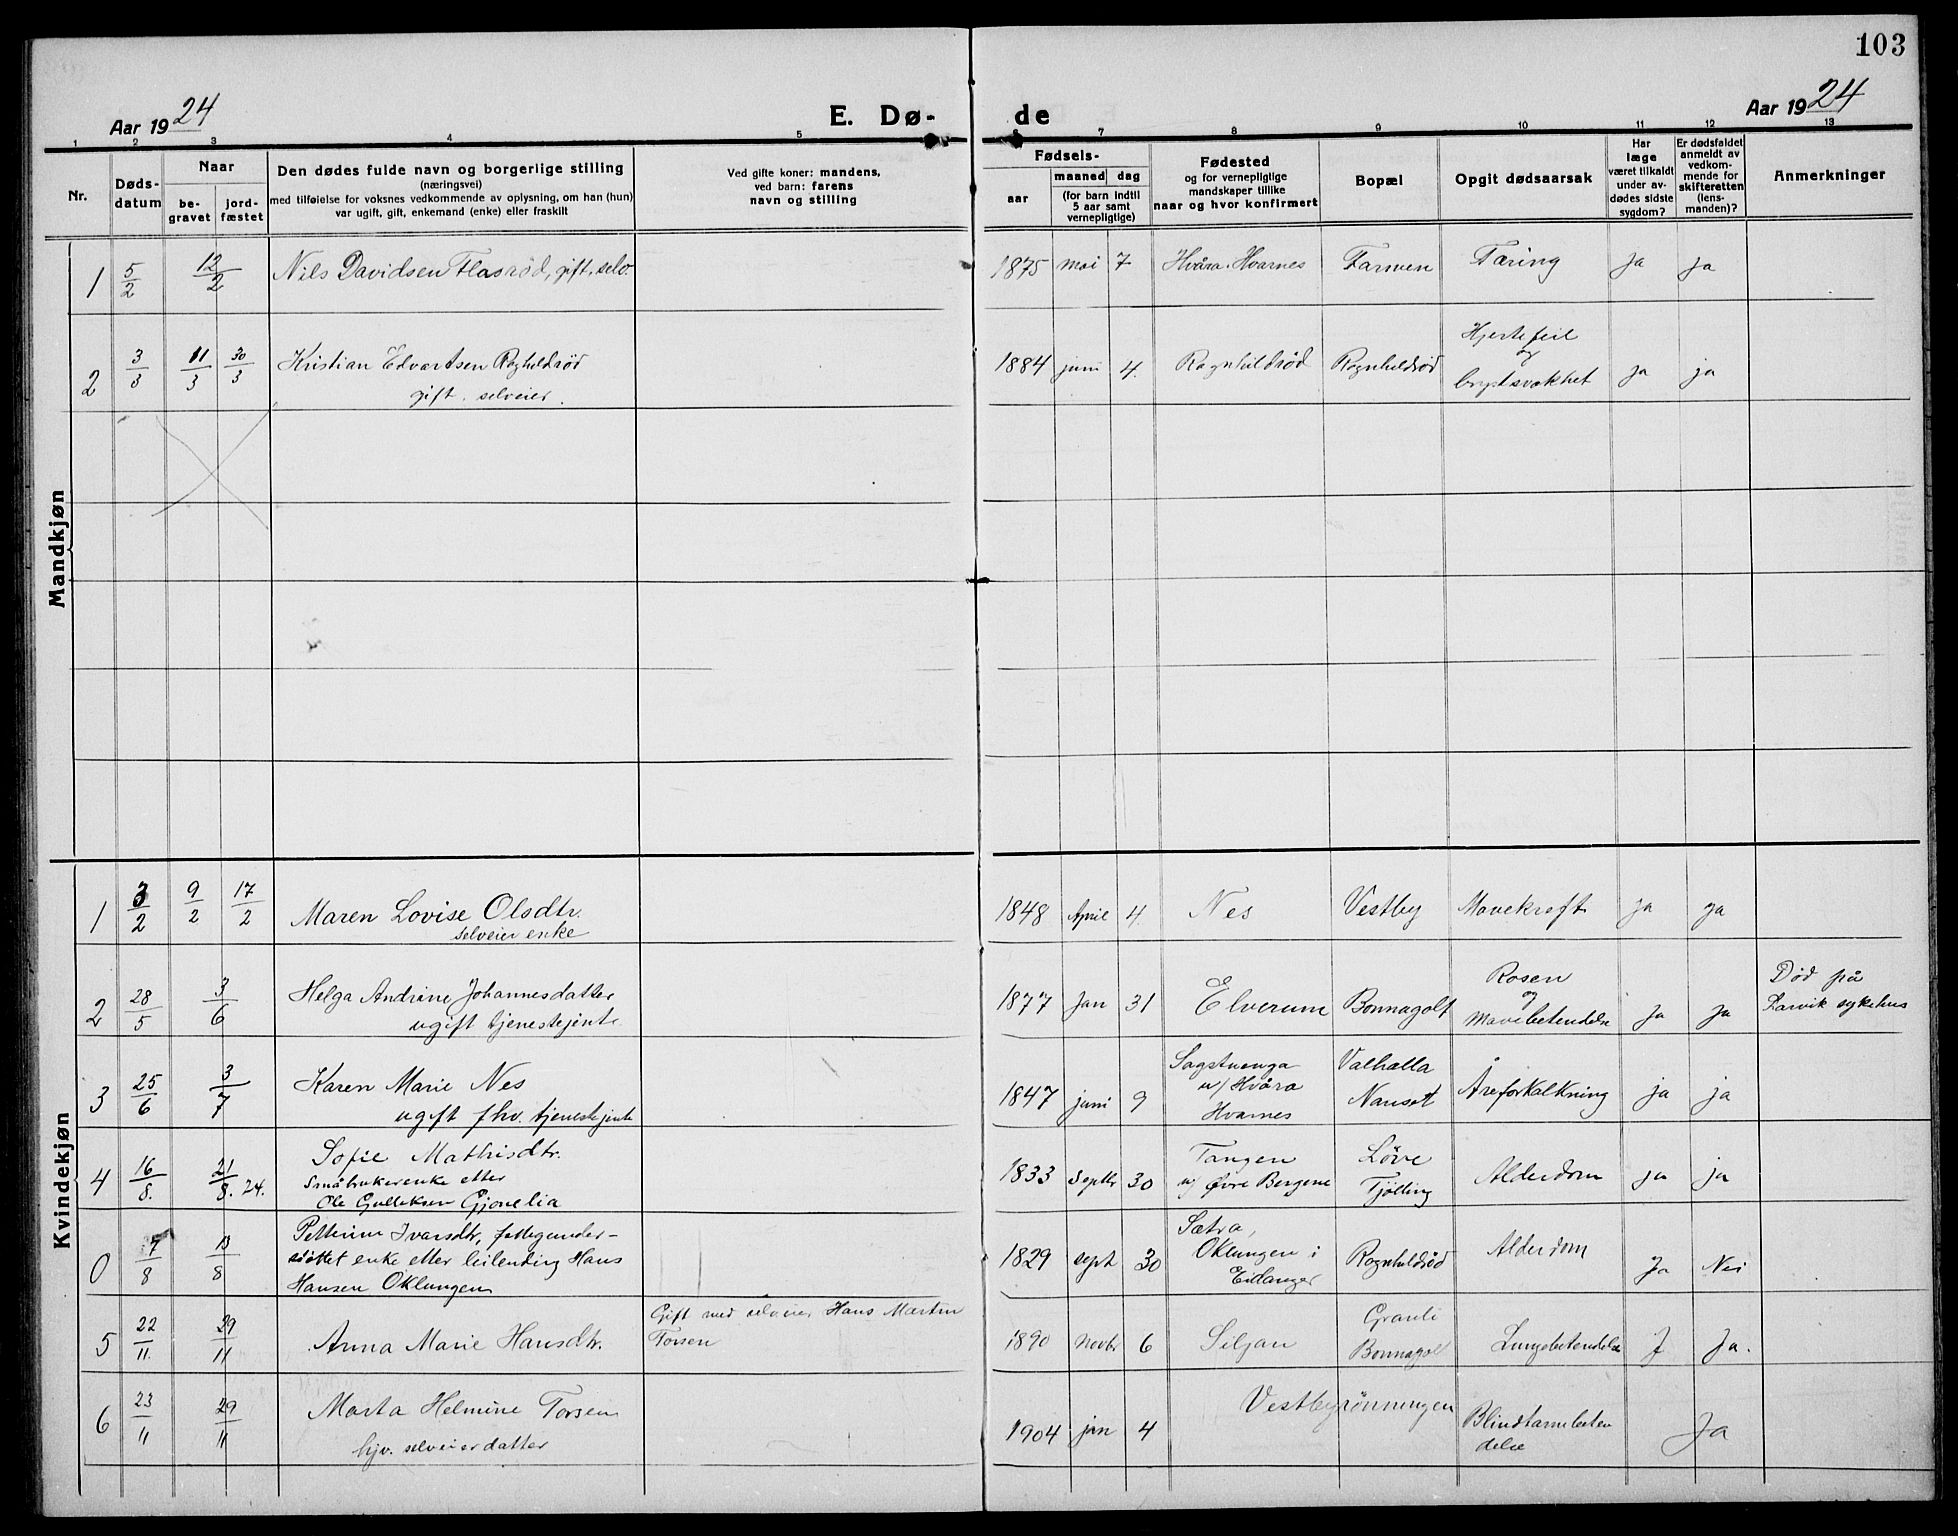 103
Aar 1924
E. Dø-
de
Aar 1924
1 2 3 4 5 6 7 8 9 10 11 12 13
Nr.
Døds-
datum
Naar
be-
gravet
jord-
fæstet
Den dødes fulde navn og borgerlige stilling
(næringsvei)
med tilføielse for voksnes vedkommende av oplysning, om han (hun)
var ugift, gift, enkemand (enke) eller fraskilt
Ved gifte koner: mandens,
ved barn: farens
navn og stilling
Fødsels-
aar
maaned dag
(for barn indtil
5 aar samt
vernepligtige)
Fødested
og for vernepligtige
mandskaper tillike
naar og hvor konfirmert
Bopæl
Opgit dødsaarsak
Har
læge
været tilkaldt
under av-
dødes sidste
sygdom?
Er dødsfaldet
anmeldt av
vedkom-
mende for
skifteretten
(lens-
manden)?
Anmerkninger
Mandkjøn
1 5/2 12/2 Nils Davidsen Flasrød, gift, selv. 1875 mai 7 Hvåra. Hvarnes Farmen Tæring ja ja
2 3/3 11/3 30/3 Kristian Edvartsen Ragnhildrød
gift. selveier.
1884 juni 4. Ragnhildrød Ragnhildrød
Hjertefeil
og
brystsvakhet
ja ja
Kvindekjøn
1 3/2 9/2 17/2 Maren Lovise Olsdtr.
selveierenke
1848 April 4. Nes Vestby Mavekræft ja ja
2 28/5 3/6 Helga Andrine Johannesdatter
ugift tjenestejente
1877 Jan 31 Elverum Bonnagolt
Rosen
og
Mavebetendelse
ja ja
Død på
Larvik sykehus
3 25/6 3/7 Karen Marie Nes
ugift fhv. tjenestejente
1847 juni 9
Sagstuenga
u/ Hvåra
Hvarnes
Valhalla
Nanset
Åreforkalkning ja ja
4 16/8. 21/8. 24. Sofie Mathisdtr.
Småbrukerenke etter
Ole Gulleksen Gjønelia
1833 Septbr 30
Tangen
u/ Øvre Bergene
Løve
Tjølling
Alderdom ja ja
0 7/8 13/8 Petterine Ivarsdtr, fattigunder-
støttet enke etter leilending Hans
Hansen Oklungen
1829 sept 30
Sætra,
Oklungen i
Eidanger
Ragnhildrød Alderdom Ja Nei
5 22/11. 29/11 Anna Marie Hansdtr.
Gift med selveier Hans Martin
Torsen
1890 Novbr 6 Siljan
Granli
Bonnagolt
Lungebetendelse J Ja.
6 23/11 29/11 Marta Helmine Torsen
hjv. selveierdatter
1904 jan 4 Vestbyrønningen
Blindtarmbeten
delse
Ja